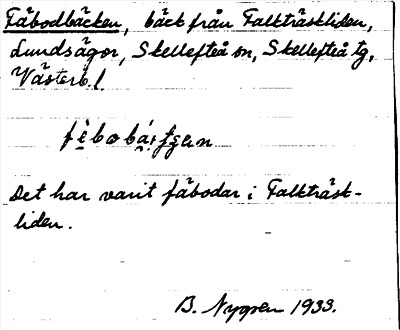 Fäbodbäcken, bäck från Falkträskliden,
Lundsågor, Skellefteå sn, Skellefteå tg,
Västerb. l.
Det har varit fäbodar i Falkträsk-
liden.
B. Nygren 1933.